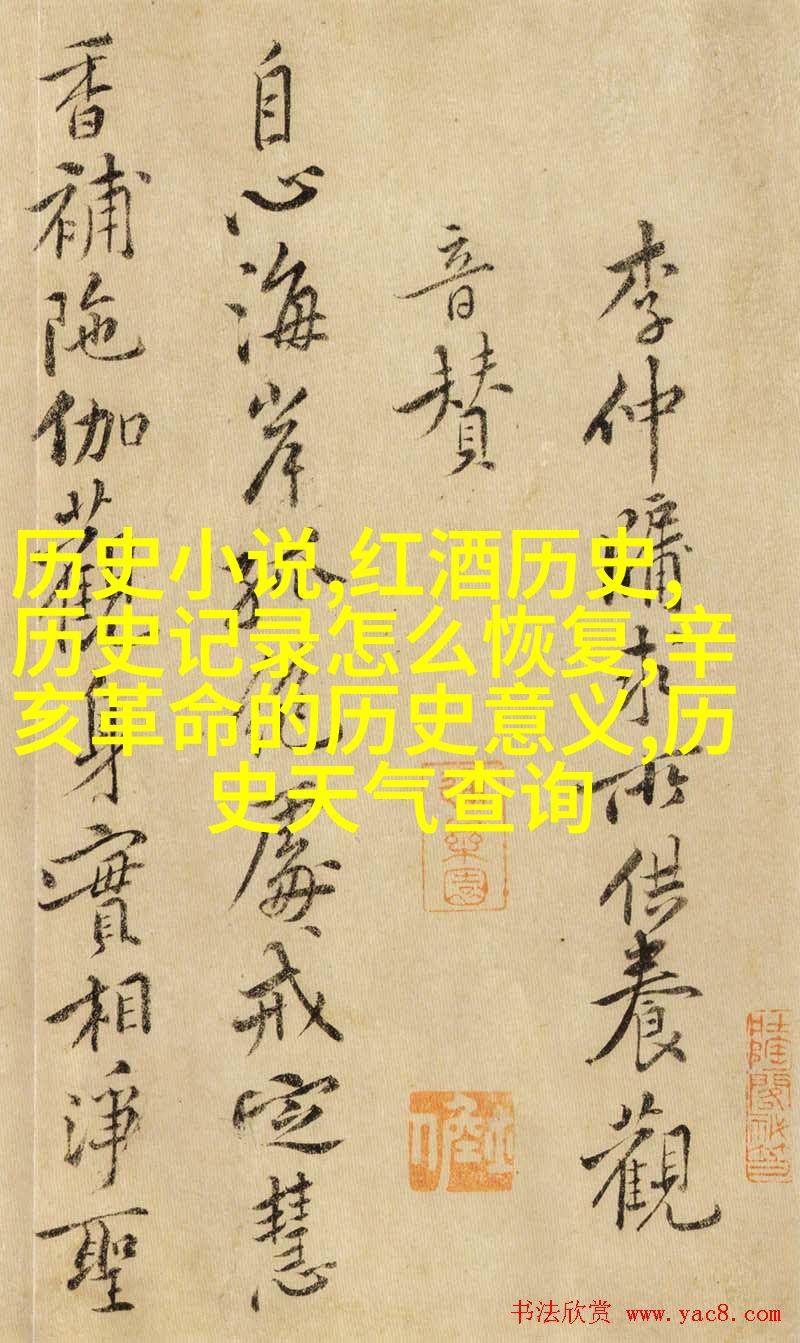 李仲牖求所供養觀
音賛
自心海岸孤絶處戒定慧
香補陁伽觀身實相淨聖
历史小说,红酒历史,
历史记录怎么恢复,辛
亥革命的历史意义,历
史天气查询
书法欣赏 www.yac8.com